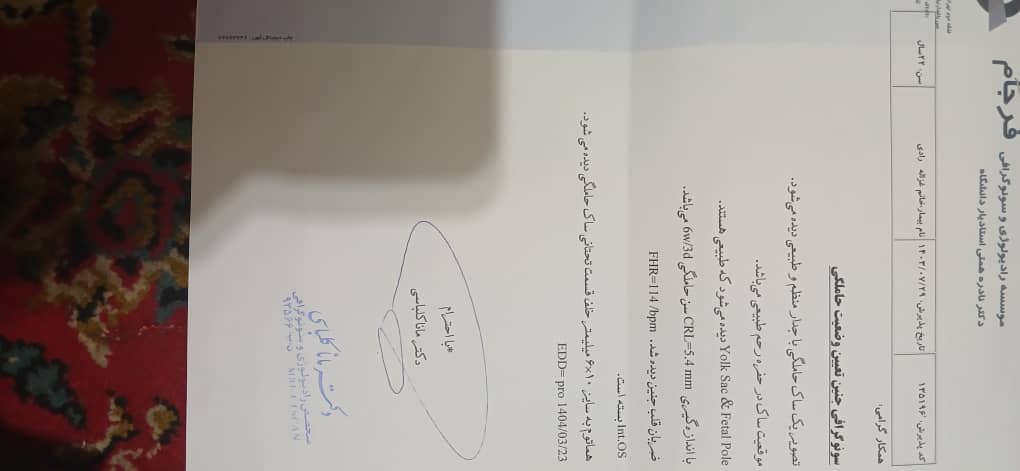 فرجام
موسسه رادیولوژی و سونوگرافی
دکتر نادره همتی استادیار دانشگاه
کد پذیرش: ۱۳۵۱۹۶ تاریخ پذیرش: ۱۴۰۳/۰۷/۲۹ نام بیمار: خانم غزاله رادی سن: ۲۲سال
همکار گرامی:
سونوگرافی جنین تعیین وضعیت حاملگی
تصویر یک ساک حاملگی با جدار منظم و طبیعی دیده می‌شود.
موقعیت ساک در حفره رحم طبیعی می‌باشد.
Yolk Sac & Fetal Pole دیده می‌شود که طبیعی هستند.
با اندازه گیری CRL=5.4 mm سن حاملگی 6w/3d می‌باشد.
ضربان قلب جنین دیده شد. FHR=114 /bpm
Int.OS بسته است.
هماتوم به سایز ۱۰×۶ میلیمتر خلف قسمت تحتانی ساک حاملگی دیده می شود.
EDD= pro 1404/03/23
*با احترام
دکتر مانا کلباسی
دکتر مانا کلباسی
متخصص رادیولوژی و سونوگرافی